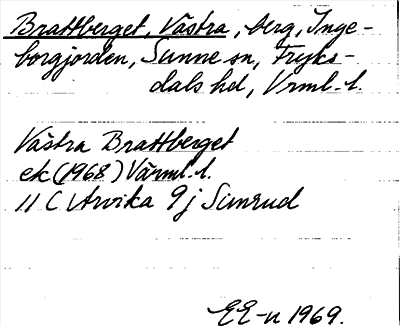 Brattberget, Västra, berg, Inge-
borgjorden, Sunne sn, Fryks-
dals hd, Vrml. l.
Västra Brattberget
ek (1968) Värml. l.
11 C Arvika 9 j Sunrud
EE-n 1969.